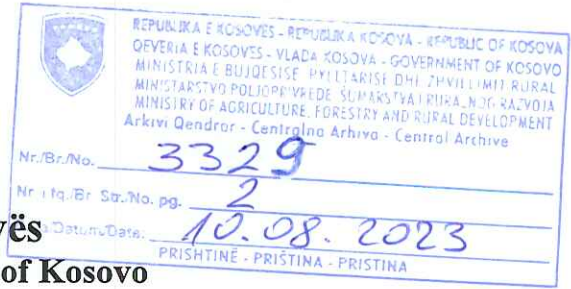 REPUBLIKA E KOSOVËS - REPUBLIKA KOSOVA - REPUBLIC OF KOSOVA
QEVERIA E KOSOVËS - VLADA KOSOVA - GOVERNMENT OF KOSOVO
MINISTRIA E BUJQËSISË, PYLLTARISË DHE ZHVILLIMIT RURAL
MINISTARSTVO POLJOPRIVREDE, ŠUMARSTVA I RURALNOG RAZVOJA
MINISTRY OF AGRICULTURE, FORESTRY AND RURAL DEVELOPMENT
Arkivi Qendror - Centralna Arhiva - Central Archive
Nr./Br./No. 3329
Nr i fq./Br Str./No. pg. 2
/Datum/Date: 10.08.2023
PRISHTINË - PRIŠTINA - PRISTINA
vës
of Kosovo